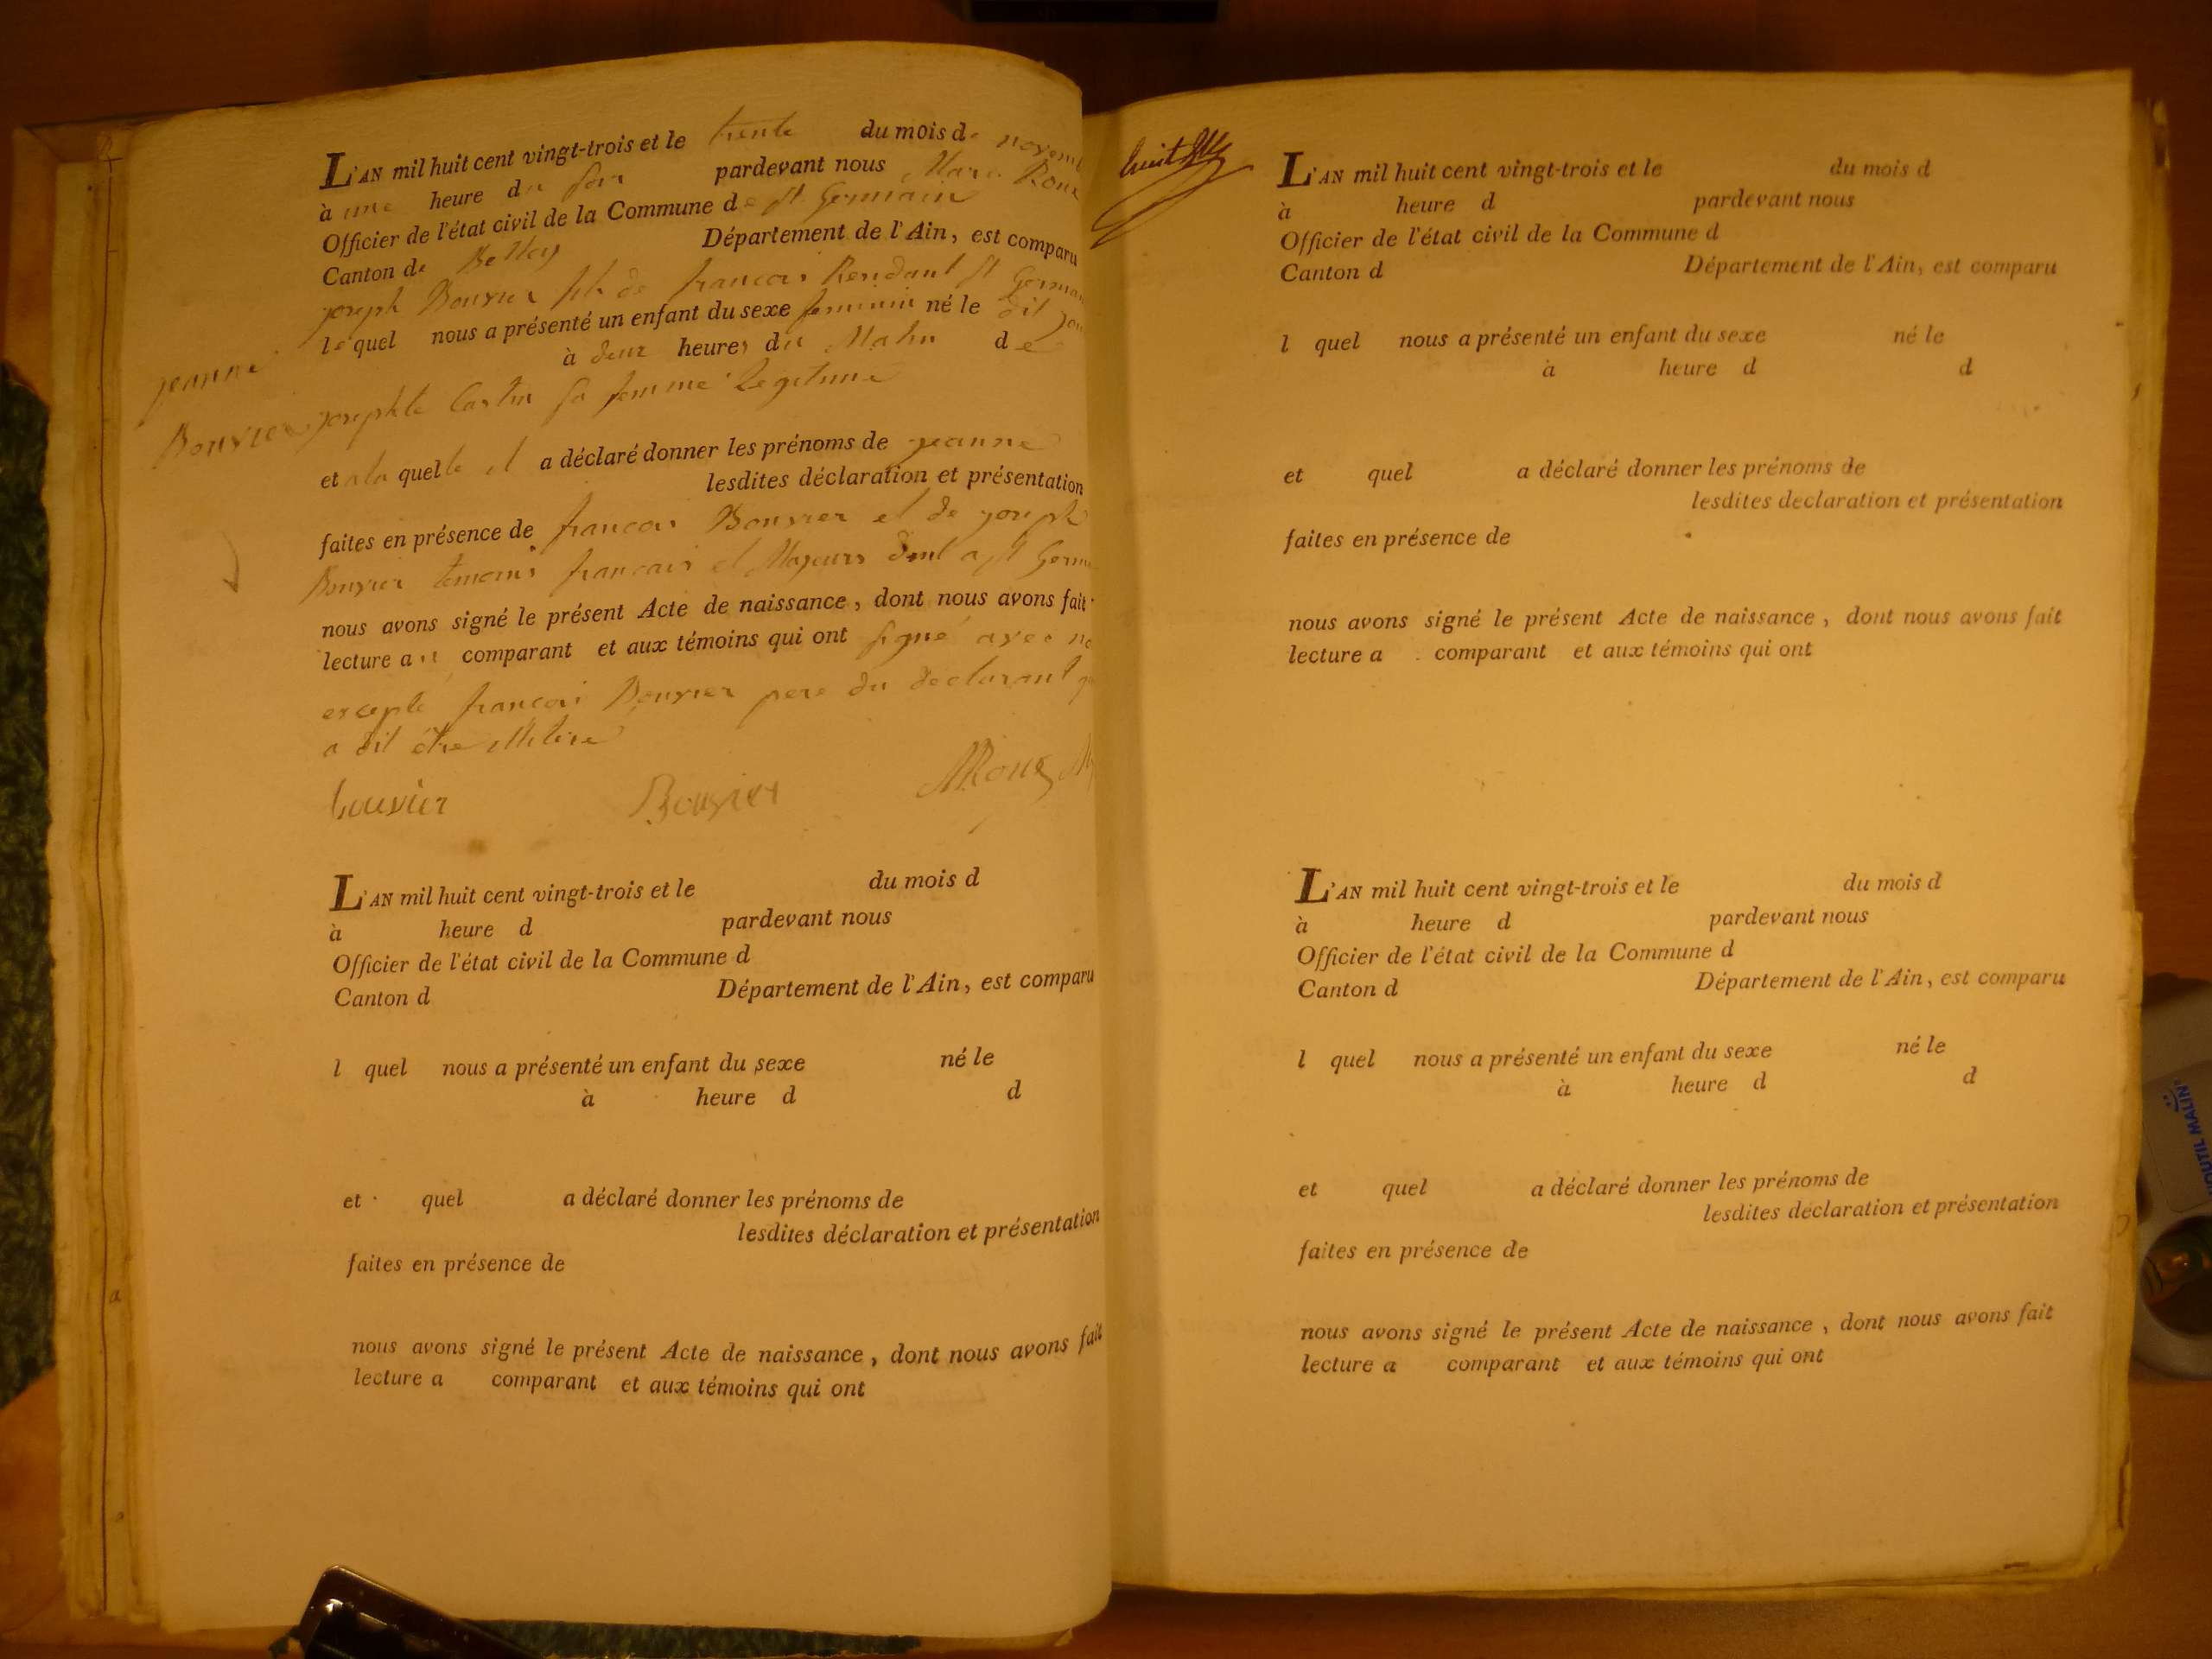 L'AN mil huit cent vingt-trois et le trente du mois de novemb
à une heure du soir pardevant nous Marc Roux
Officier de l'état civil de la Commune de st Germain
Canton de Belley Département de l'Ain, est comparu
joseph Bouvier fils de francois Residant st Germain
lequel nous a présenté un enfant du sexe feminin né le dit jou
à deux heures du Matin de
josephte Castin sa femme Legitime
jeanne
Bouvier
et a la quelle il a déclaré donner les prénoms de jeanne
lesdites déclaration et présentation
faites en présence de francois Bouvier et de joseph
Bouvier temoins francais et Majeurs Dml a st Germ
nous avons signé le présent Acte de naissance, dont nous avons fait
lecture au comparant et aux témoins qui ont signé avec no
excepte francois Bouvier pere du declarant q
a dit être illitiré
bouvier Bouvier MRoux
L'AN mil huit cent vingt-trois et le du mois d
à heure d pardevant nous
Officier de l'état civil de la Commune d
Canton d Département de l'Ain, est comparu
l quel nous a présenté un enfant du sexe né le
à heure d d
et quel a déclaré donner les prénoms de
lesdites déclaration et présentation
faites en présence de
nous avons signé le présent Acte de naissance, dont nous avons fait
lecture a comparant et aux témoins qui ont
huit
L'AN mil huit cent vingt-trois et le du mois d
à heure d pardevant nous
Officier de l'état civil de la Commune d
Canton d Département de l'Ain, est comparu
l quel nous a présenté un enfant du sexe né le
à heure d d
et quel a déclaré donner les prénoms de
lesdites declaration et présentation
faites en présence de
nous avons signé le présent Acte de naissance, dont nous avons fait
lecture a comparant et aux témoins qui ont
L'AN mil huit cent vingt-trois et le du mois d
à heure d pardevant nous
Officier de l'état civil de la Commune d
Canton d Département de l'Ain, est comparu
l quel nous a présenté un enfant du sexe né le
à heure d d
et quel a déclaré donner les prénoms de
lesdites déclaration et présentation
faites en présence de
nous avons signé le présent Acte de naissance, dont nous avons fait
lecture a comparant et aux témoins qui ont
OUTIL MALIN